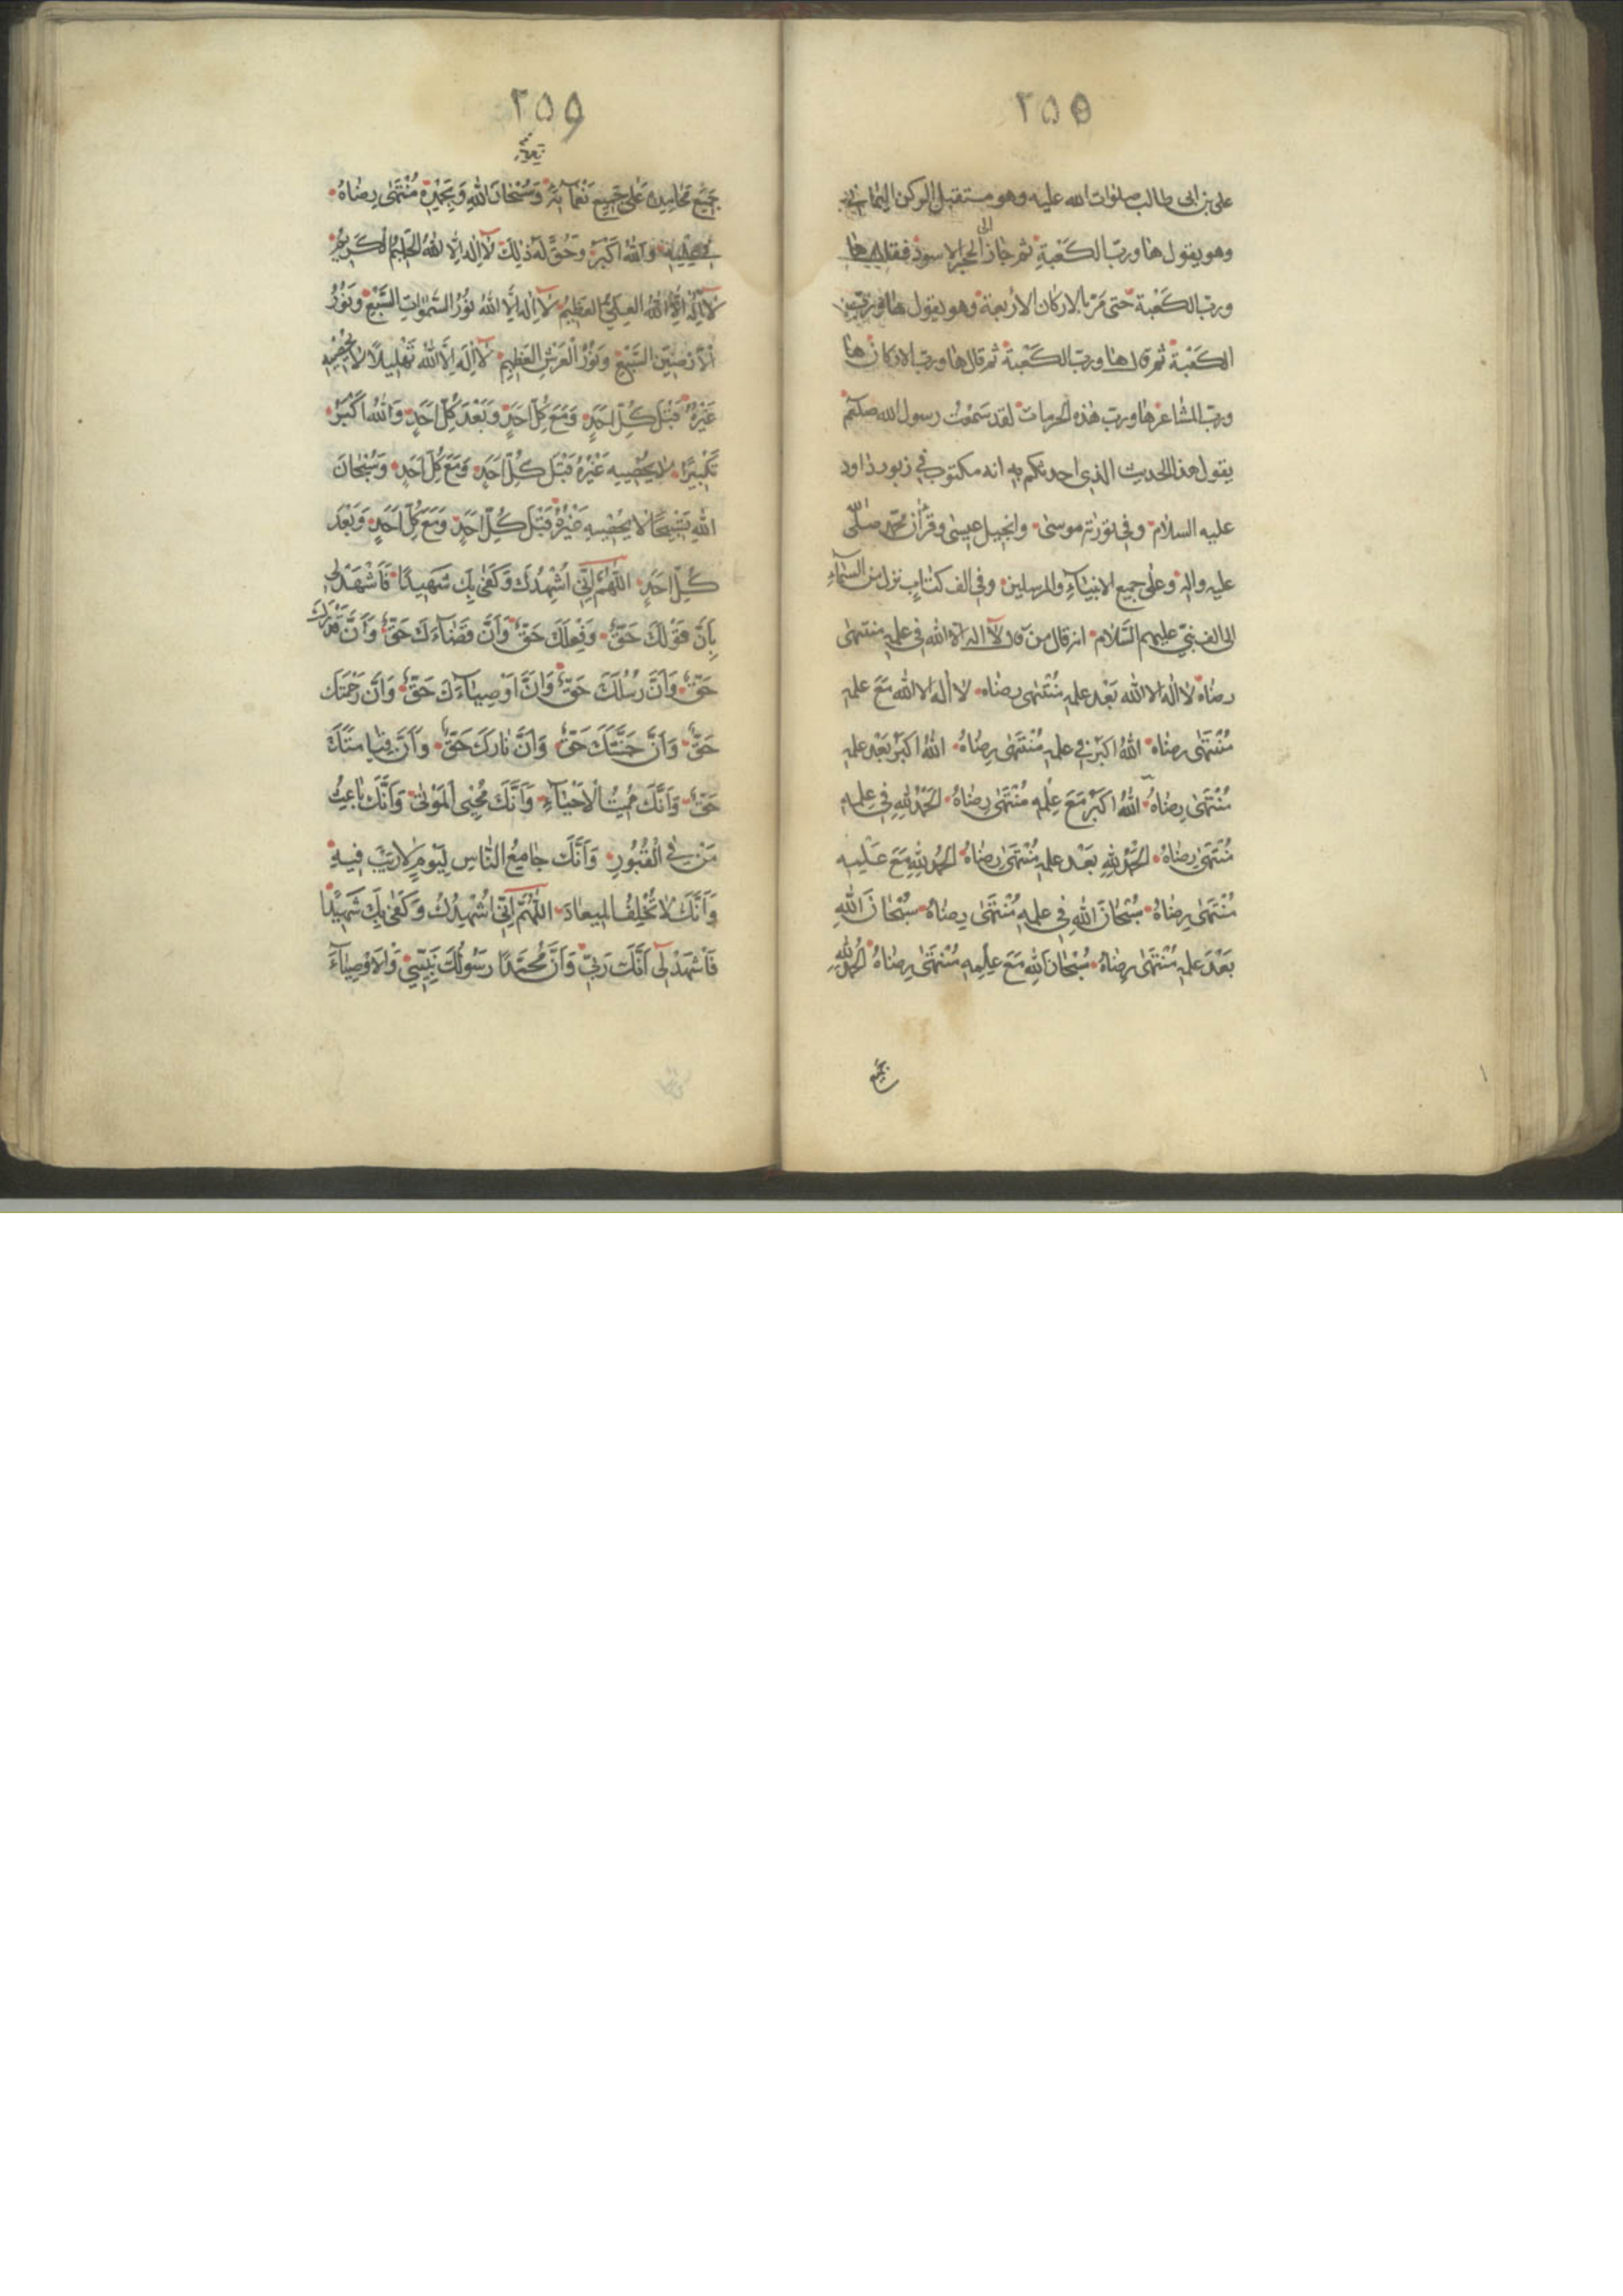 ٢٥٥
علي بن ابى طالب صلوات الله عليه وهو مستقبل الركن اليماني
وهو يقول ها ورب الكعبة ثم جاز الى الحجر الاسود فقال ها
ورب الكعبة حتى مر بالاركان الاربعة وهو يقول ها ورب
الكعبة ثم قال ها ورب الكعبة ثم قال ها ورب الاركان ها
ورب المشاعر ها ورب هذه الحرمات لقد سمعت رسول الله صلعم
يقول هذا الحديث الذي احدثكم به انه مكتوب في زبور داود
عليه السلام وفي تورية موسى وانجيل عيسى وقرآن محمد صلى الله
عليه واله وعلى جميع الانبيآء والمرسلين وفي الف كتاب نزل من السمآء
الى الف نبي عليهم السلام انه قال من قال لا اله الا الله في علمه منتهى
رضاه لا اله الا الله بَعْد علمه مُنْتَهى رضاه لا اله الا الله مَعَ علمه
مُنْتَهَى رضاه اللهُ اكبر في علمه مُنْتَهَى رِضاهُ اللهُ اكبرُ بَعْدَ علمه
مُنْتَهَى رِضاهُ اللهُ اكبرُ مَعَ عِلْمِهِ مُنْتَهَى رِضاهُ الحَمْدُ للهِ في عِلمِهِ
مُنْتَهَى رضاهُ الحَمْدُ للهِ بَعْد علمه مُنْتَهَى رضاهُ الحَمْدُ للهِ مَعَ عِلْمِه
مُنْتَهَى رِضاهُ سُبْحَانَ اللهِ في علمِهِ مُنْتَهَى رِضاهُ سُبْحَانَ اللهِ
بَعْدَ علمه مُنْتَهَى رِضاهُ سُبْحَانَ اللهِ مَعَ عِلْمِهِ مُنْتَهَى رِضاهُ الحَمْدُ للهِ
بجميع
٢٥٩
جَميعِ مَحَامِدِهِ عَلَى جَمِيعِ نَعْمآئِهِ وَسُبْحَانَ اللهِ وَبِحَمْدِهِ مُنْتَهَى رِضاهُ
وَاللهُ اَكْبَرُ وَحُقَّ لَهُ ذٰلِكَ لا اِلهَ اِلا اللهُ الحَليمُ الْكَريمُ
لا اِلهَ اِلا اللهُ العَلِيُّ العَظيمُ لا اِلهَ اِلا اللهُ نُورُ السَّمٰواتِ السَّبْعِ وَنُورُ
الْاَرَضِينَ السَّبْعِ وَنُورُ الْعَرْشِ العَظِيمِ لا اِلهَ اِلا اللهُ تَهْلِيلًا لا يُحْصِيهِ
غَيْرُهُ قَبْلَ كُلِّ اَحَدٍ وَمَعَ كُلِّ اَحَدٍ وَبَعْدَ كُلِّ اَحَدٍ وَاللهُ اَكْبَرُ
تَكْبِيرًا لا يُحْصِيهِ غَيْرُهُ قَبْلَ كُلِّ اَحَدٍ وَمَعَ كُلِّ اَحَدٍ وَسُبْحَانَ
اللهِ تَسْبِيحًا لا يُحْصِيهِ غَيْرُهُ قَبْلَ كُلِّ اَحَدٍ وَمَعَ كُلِّ اَحَدٍ وَبَعْدَ
كُلِّ اَحَدٍ اللّٰهُمَّ اِنّي اُشْهِدُكَ وَكَفَى بِكَ شَهِيدًا فَاَشْهَدْ لي
بِاَنَّ قَوْلَكَ حَقٌّ وَفِعْلَكَ حَقٌّ وَاَنَّ قَضَآءَكَ حَقٌّ وَاَنَّ قَدَرَكَ
حَقٌّ وَاَنَّ رُسُلَكَ حَقٌّ وَاَنَّ اَوْصِيآءَكَ حَقٌّ وَاَنَّ رَحْمَتَكَ
حَقٌّ وَاَنَّ جَنَّتَكَ حَقٌّ وَاَنَّ نارَكَ حَقٌّ وَاَنَّ قِيامَتَكَ
حَقٌّ وَاَنَّكَ مُمِيتُ الْاَحْيآءِ وَاَنَّكَ مُحْيِي الْمَوْتى وَاَنَّكَ باعِثُ
مَنْ في الْقُبُورِ وَاَنَّكَ جامِعُ النَّاسِ لِيَوْمٍ لا رَيْبَ فيهِ
وَاَنَّكَ لا تُخْلِفُ الميعَادَ اللّٰهُمَّ اِنّي اُشْهِدُكَ وَكَفَى بِكَ شَهِيدًا
فَاَشْهَدْ لي اَنَّكَ رَبّي وَاَنَّ مُحَمَّدًا رَسُولُكَ نَبِيّي وَالاَوْصِيآءَ